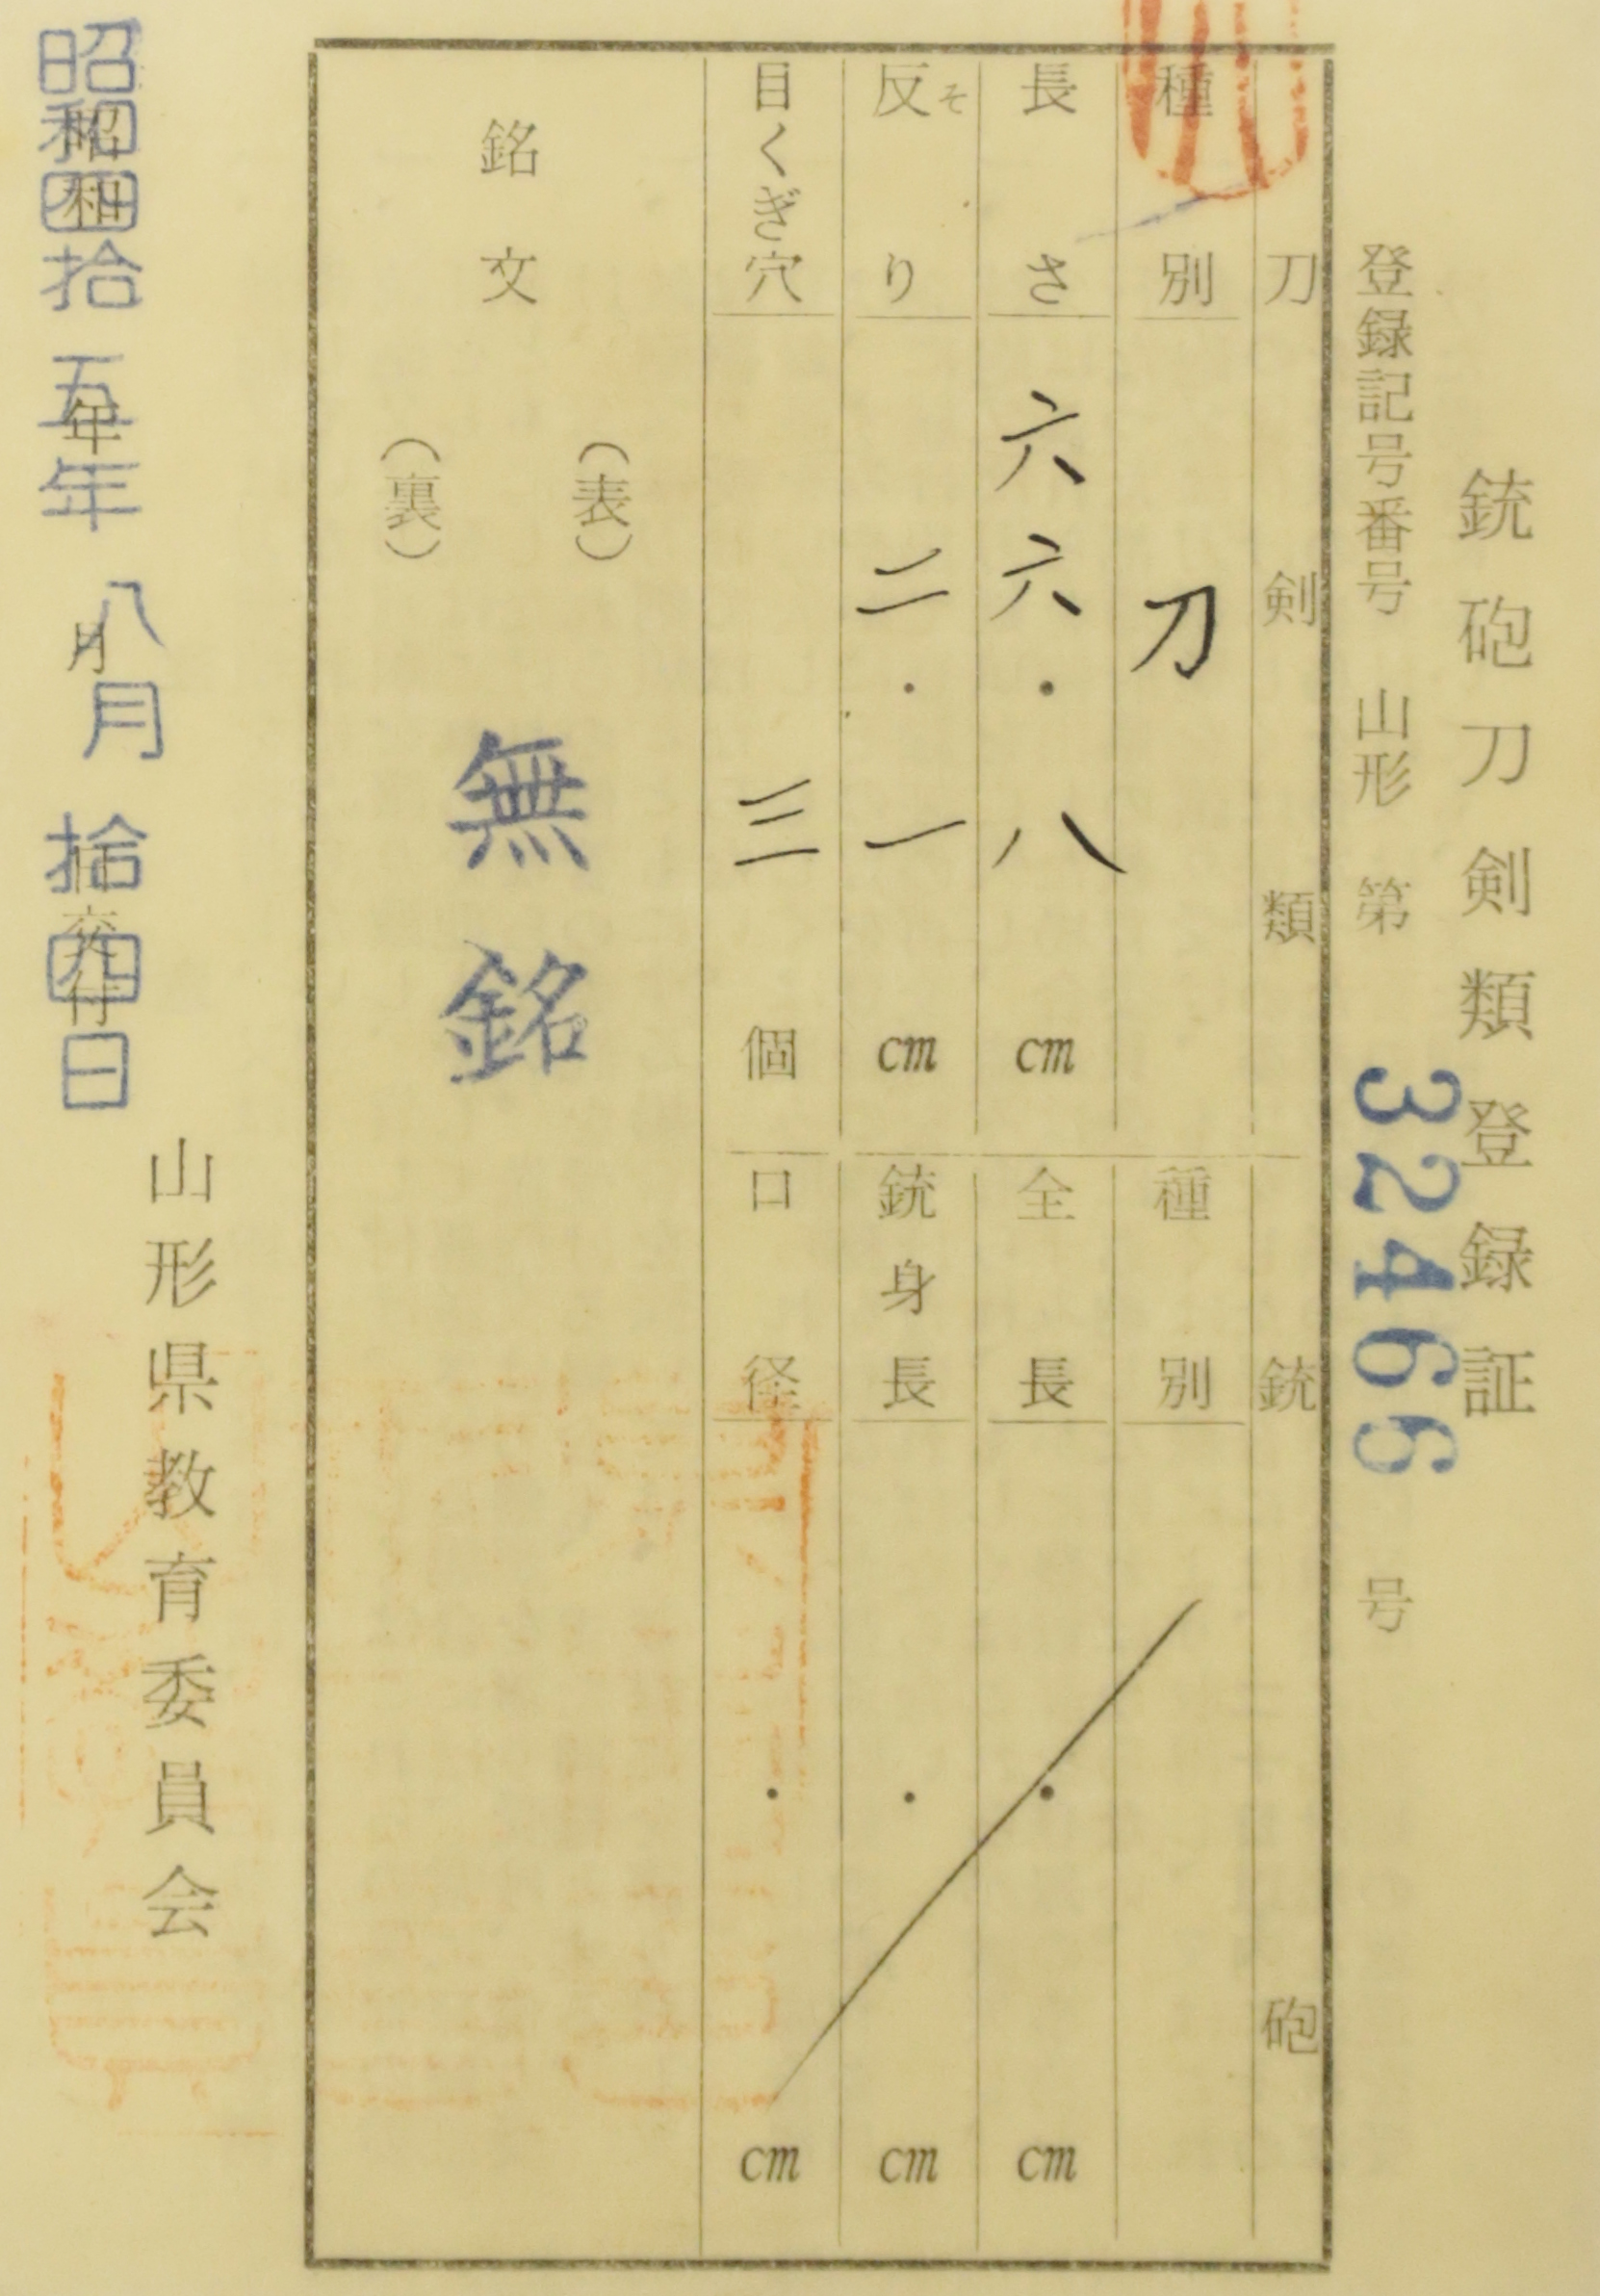 銃砲刀剣類登録証
登録記号番号 山形 第 32466 号
刀剣類
種別 刀
長さ 六六・八 cm
反り 二・一 cm
そ
目くぎ穴 三 個
銘文
(表)
(裏)
無銘
銃砲
種別
全長 ・ cm
銃身長 ・ cm
口径 ・ cm
昭和 年 月 日交付
昭和四拾五年八月拾四日
山形県教育委員会